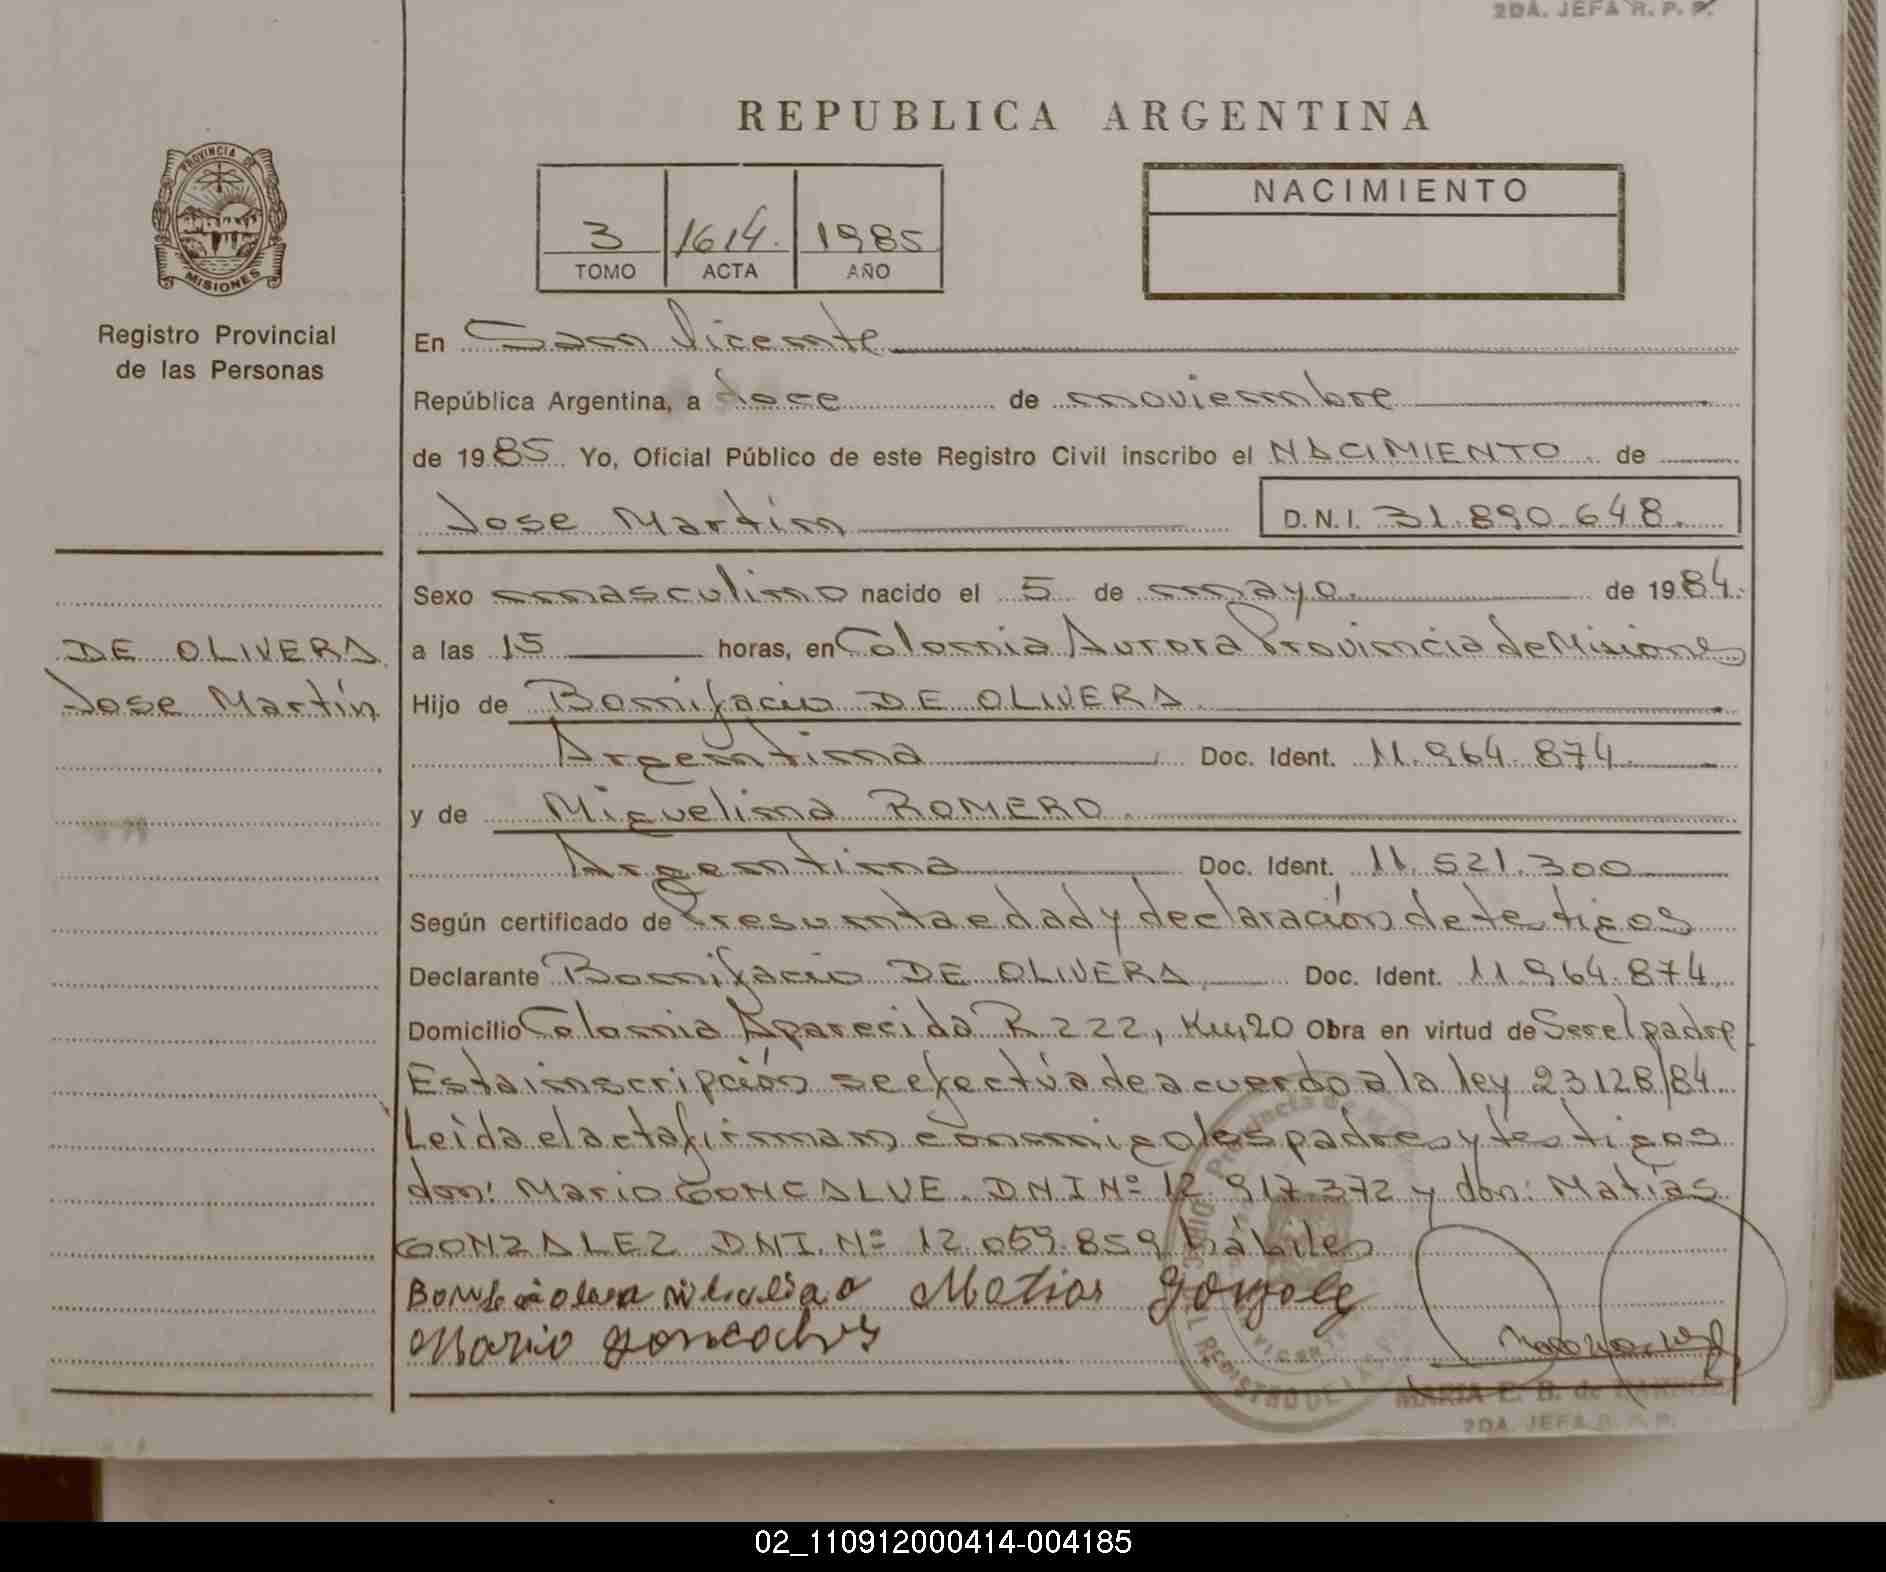 2DA. JEFA R. P. P.
REPUBLICA ARGENTINA
PROVINCIA DE
MISIONES
Registro Provincial
de las Personas
3 1614. 1985
TOMO ACTA AÑO
NACIMIENTO
En San Vicente
República Argentina, a doce de noviembre
de 1985 Yo, Oficial Público de este Registro Civil inscribo el NACIMIENTO de
Jose Martin D.N.I. 31.890.648.
Sexo masculino nacido el 5 de mayo. de 1984.
DE OLIVERA
Jose Martín
a las 15 horas, en Colonia Aurora Provincia de Misiones
Hijo de Bonifacio DE OLIVERA
Argentina Doc. Ident. 11.964.874
y de Miguelina ROMERO
Argentina Doc. Ident. 11.521.300
Según certificado de Presunta edad y declaración de testigos
Declarante Bonifacio DE OLIVERA Doc. Ident. 11.964.874
Domicilio Colonia Aparecida R 222, Km,20 Obra en virtud de Ser el padre
Esta inscripción se efectúa de acuerdo a la ley 23128/84
Leída el acta firman conmigo los padres y testigos
don: Mario GONCALVE DNI Nº 12.917.372 y don: Matías
GONZALEZ DNI. Nº 12.059.859 hábiles
Matias
Mario
MARIA E. B. de
2DA. JEFA R. P. P.
02_110912000414-004185